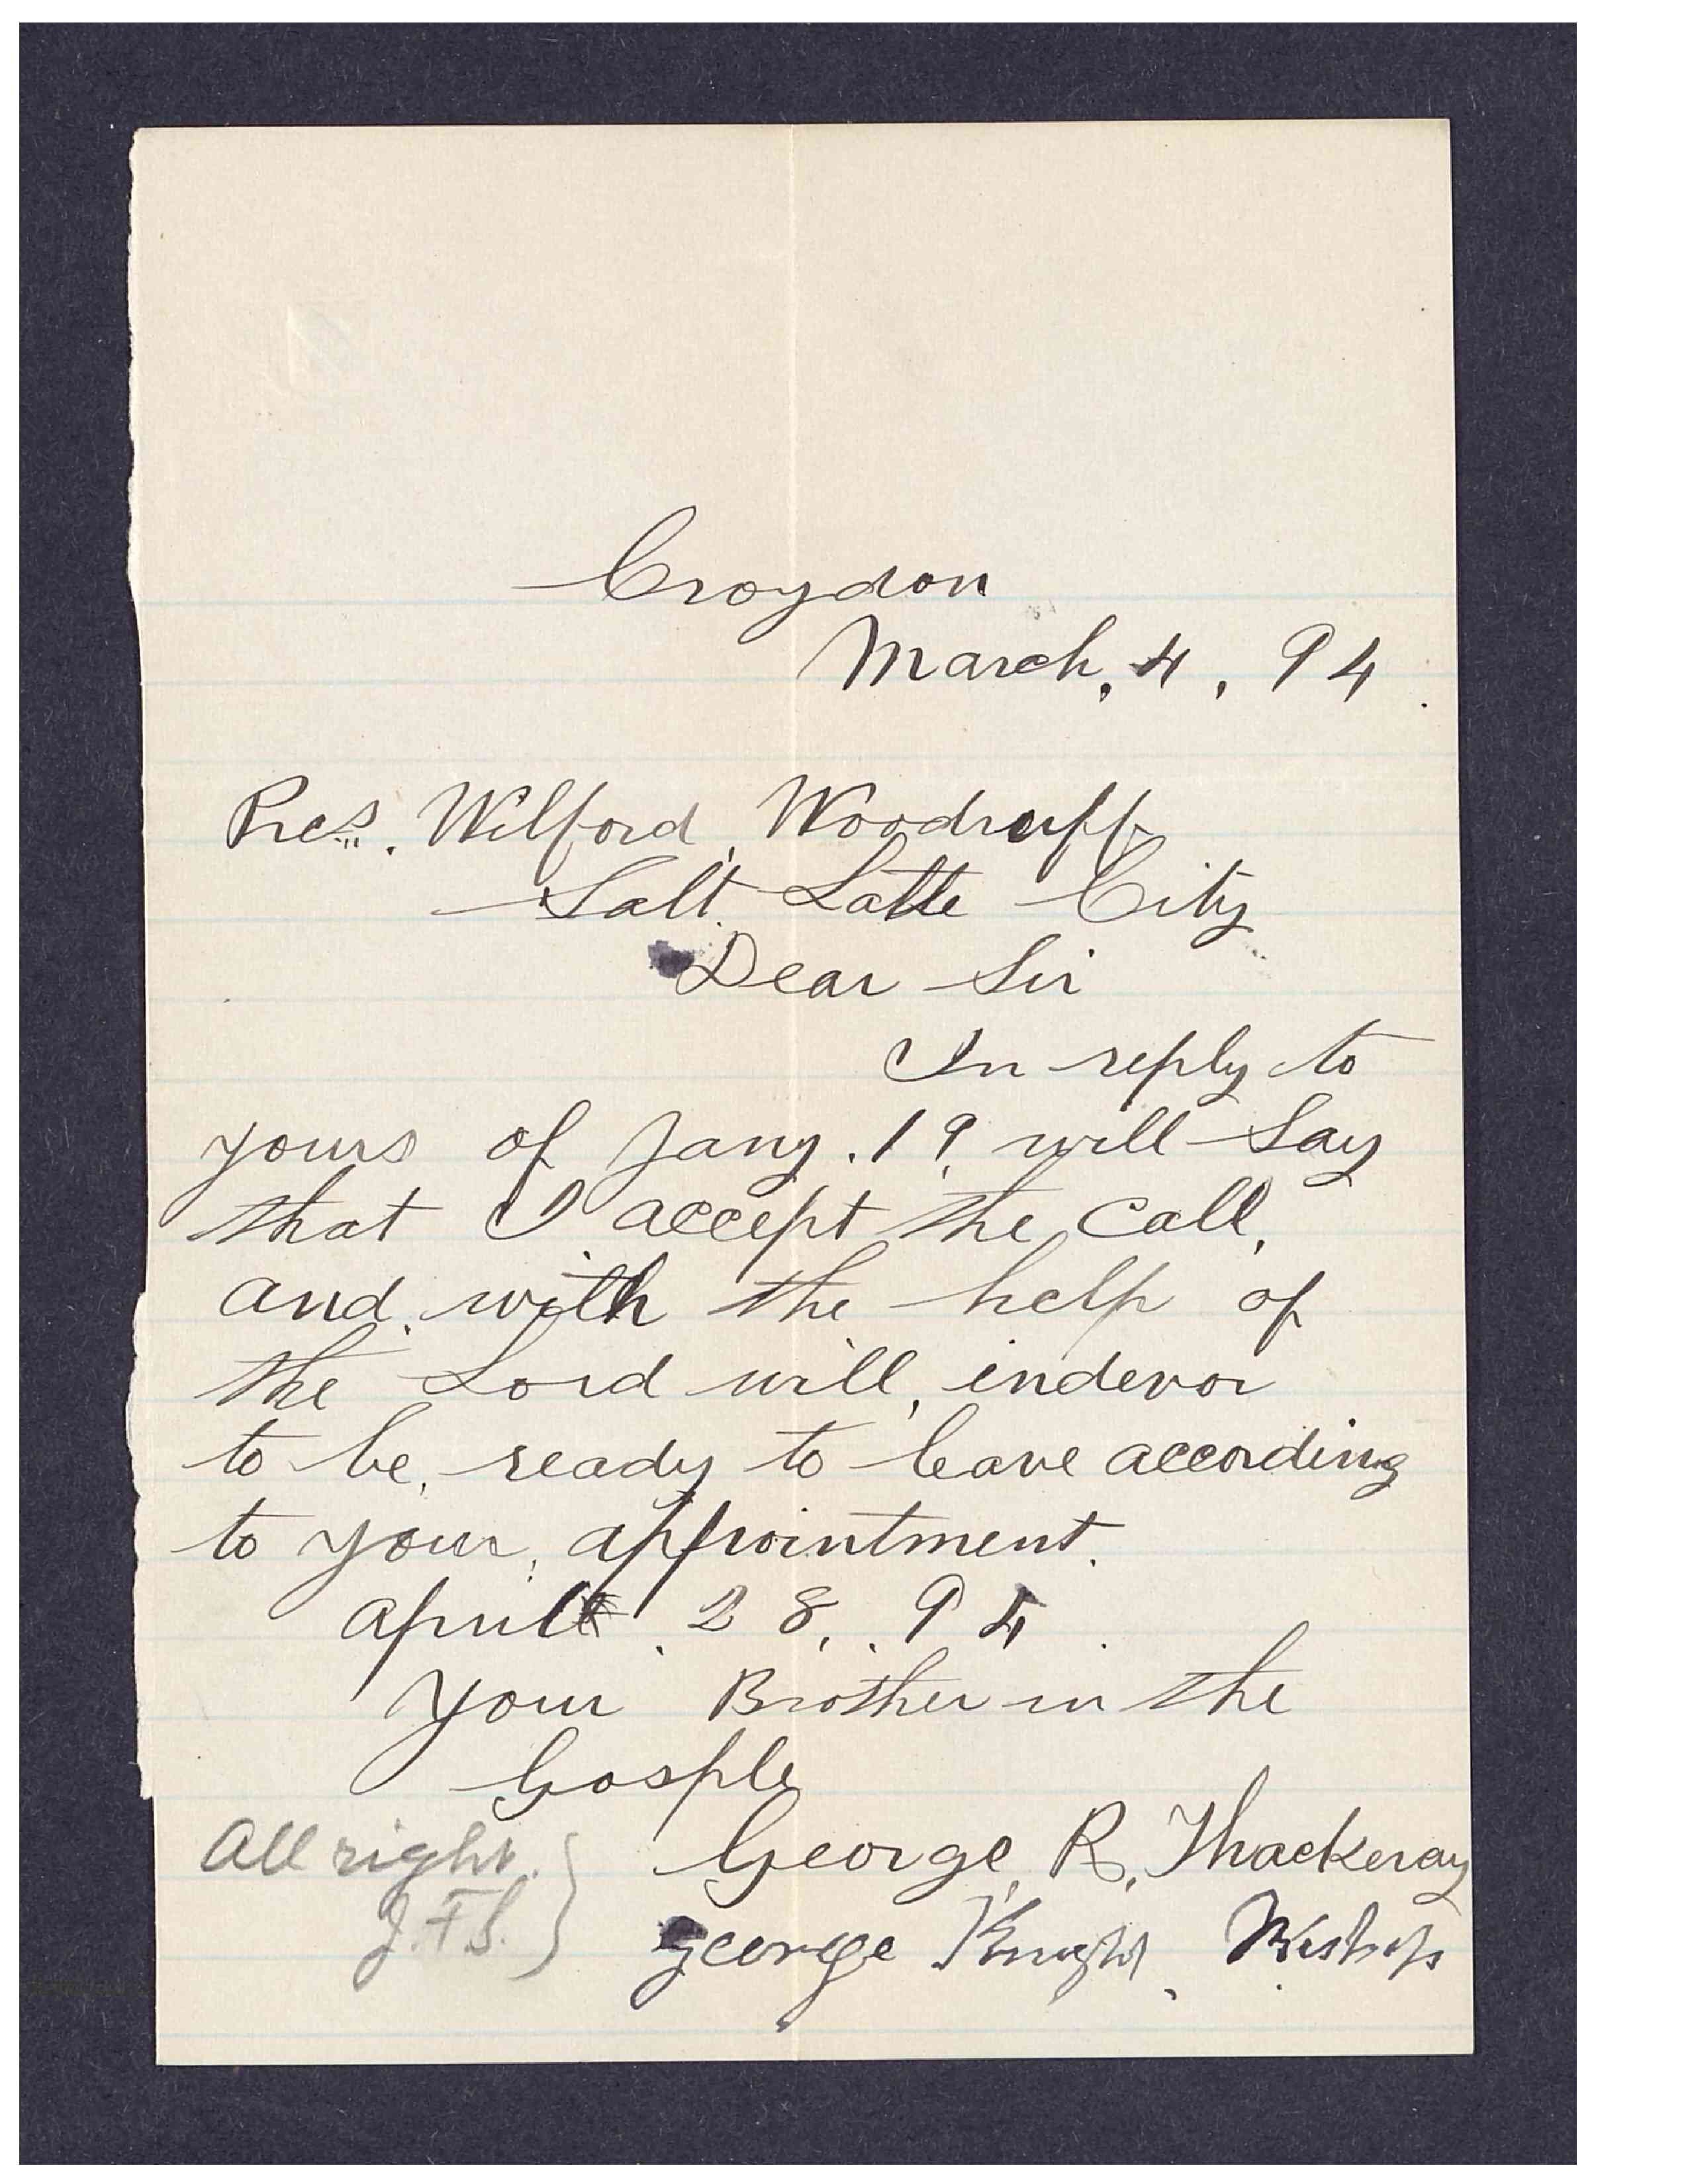 Croydon
March, 4, 94
Pres. Wilford Woodruff
Salt Latte City
Dear Sir
In reply to
yours of Jany. 19, will say
that I accept the call,
and with the help of
the Lord will, indevor
to be, ready to leave according
to your, appointment.
April 28, 94
Your Brother in the
Gosple
George R, Thackeray
George Knight, Bishop
All right.
J.F.S.